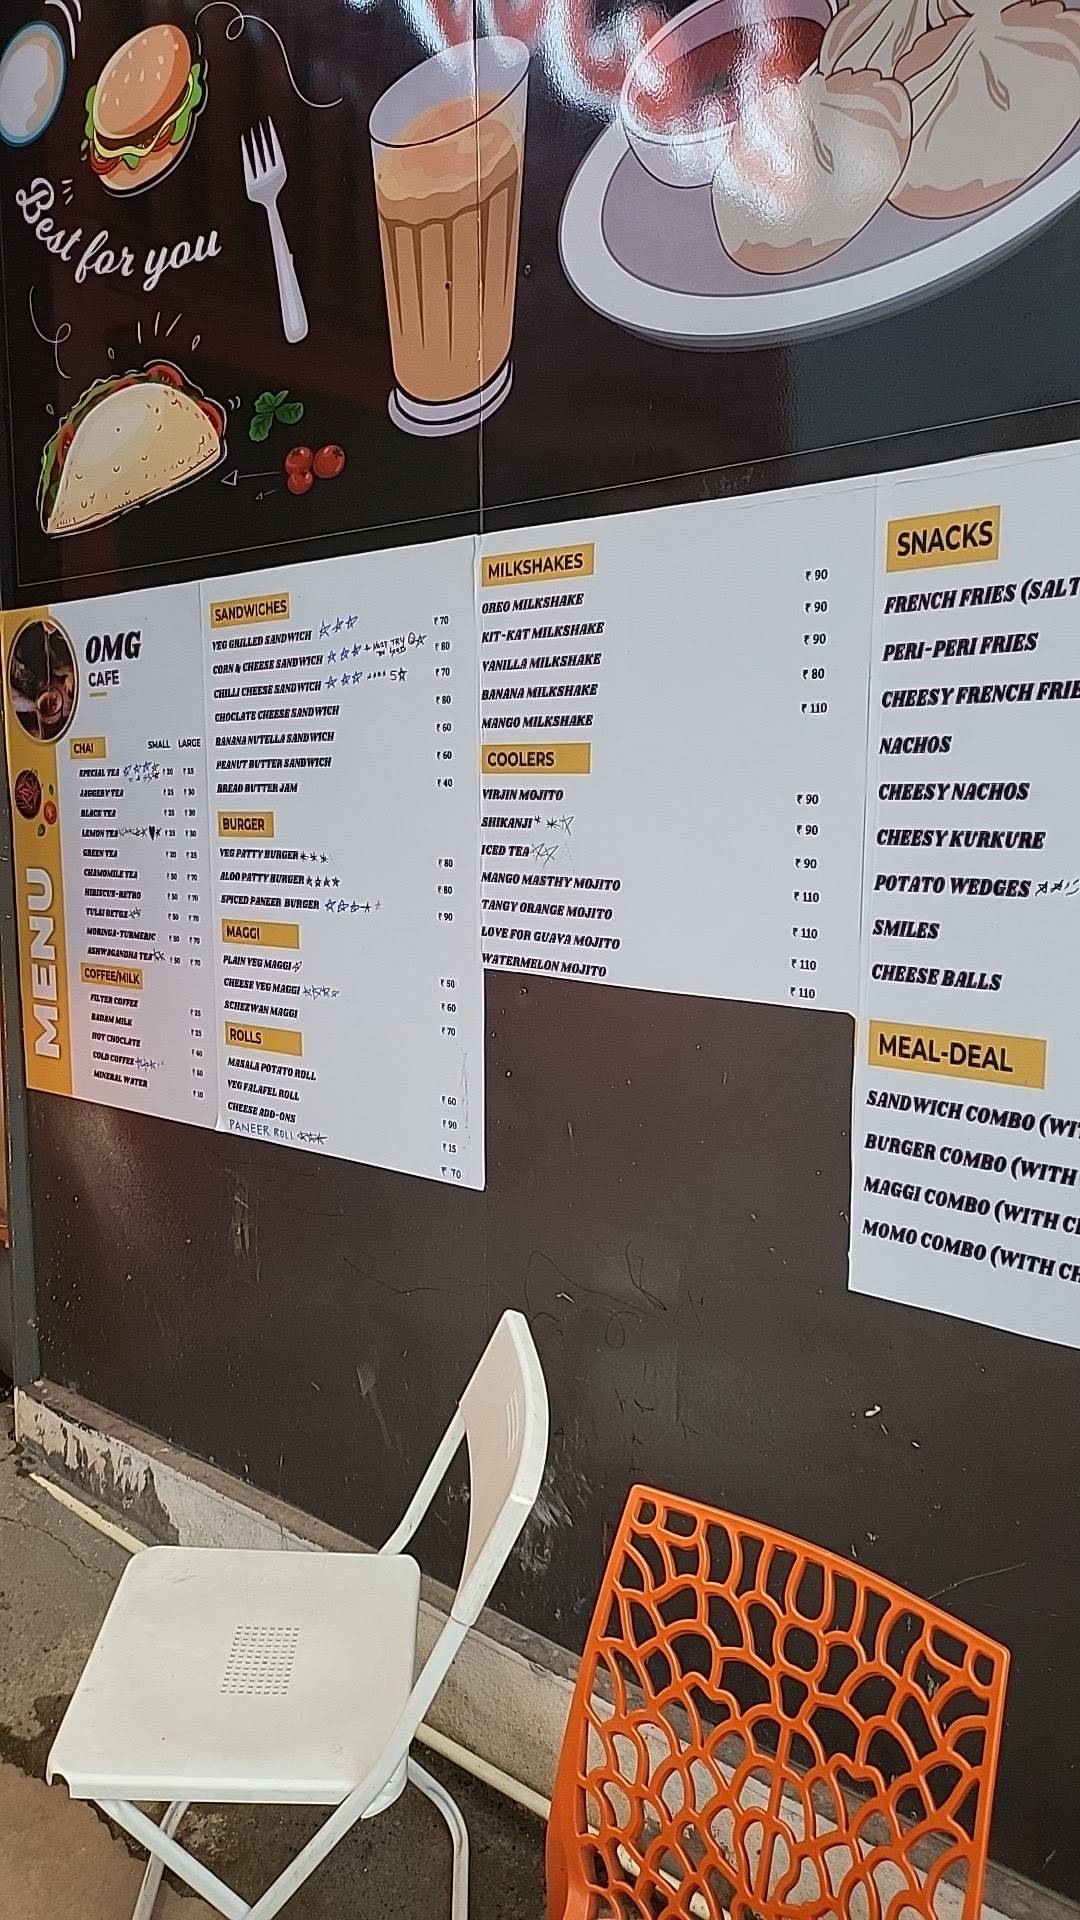 Best for you
OMG
CAFE
MENU
CHAI SMALL LARGE
SPECIAL TEA ₹20 ₹25
JAGGERY TEA ₹25 ₹30
BLACK TEA ₹25 ₹30
LEMON TEA ₹25 ₹30
GREEN TEA ₹20 ₹25
CHAMOMILE TEA ₹50 ₹70
HIBISCUS-RETRO ₹50 ₹70
TULSI DETOX ₹50 ₹70
MORINGA-TURMERIC ₹50 ₹70
ASHWAGANDHA TEA ₹50 ₹70
COFFEE/MILK
FILTER COFFEE ₹25
BADAM MILK ₹25
HOT CHOCLATE ₹60
COLD COFFEE ₹60
MINERAL WATER ₹10
SANDWICHES
VEG GRILLED SANDWICH ₹70
CORN & CHEESE SANDWICH MUST TRY ₹80
CHILLI CHEESE SANDWICH 5☆ ₹70
CHOCLATE CHEESE SANDWICH ₹80
BANANA NUTELLA SANDWICH ₹60
PEANUT BUTTER SANDWICH ₹60
BREAD BUTTER JAM ₹40
BURGER
VEG PATTY BURGER ₹80
ALOO PATTY BURGER ₹80
SPICED PANEER BURGER ₹90
MAGGI
PLAIN VEG MAGGI ₹50
CHEESE VEG MAGGI ₹60
SCHEZWAN MAGGI ₹70
ROLLS
MASALA POTATO ROLL ₹60
VEG FALAFEL ROLL ₹90
CHEESE ADD-ONS ₹15
PANEER ROLL ₹70
MILKSHAKES
OREO MILKSHAKE ₹90
KIT-KAT MILKSHAKE ₹90
VANILLA MILKSHAKE ₹90
BANANA MILKSHAKE ₹80
MANGO MILKSHAKE ₹110
COOLERS
VIRJIN MOJITO ₹90
SHIKANJI ₹90
ICED TEA ₹90
MANGO MASTHY MOJITO ₹110
TANGY ORANGE MOJITO ₹110
LOVE FOR GUAVA MOJITO ₹110
WATERMELON MOJITO ₹110
SNACKS
FRENCH FRIES (SALT
PERI-PERI FRIES
CHEESY FRENCH FRIE
NACHOS
CHEESY NACHOS
CHEESY KURKURE
POTATO WEDGES
SMILES
CHEESE BALLS
MEAL-DEAL
SANDWICH COMBO (WIT
BURGER COMBO (WITH
MAGGI COMBO (WITH CH
MOMO COMBO (WITH CH